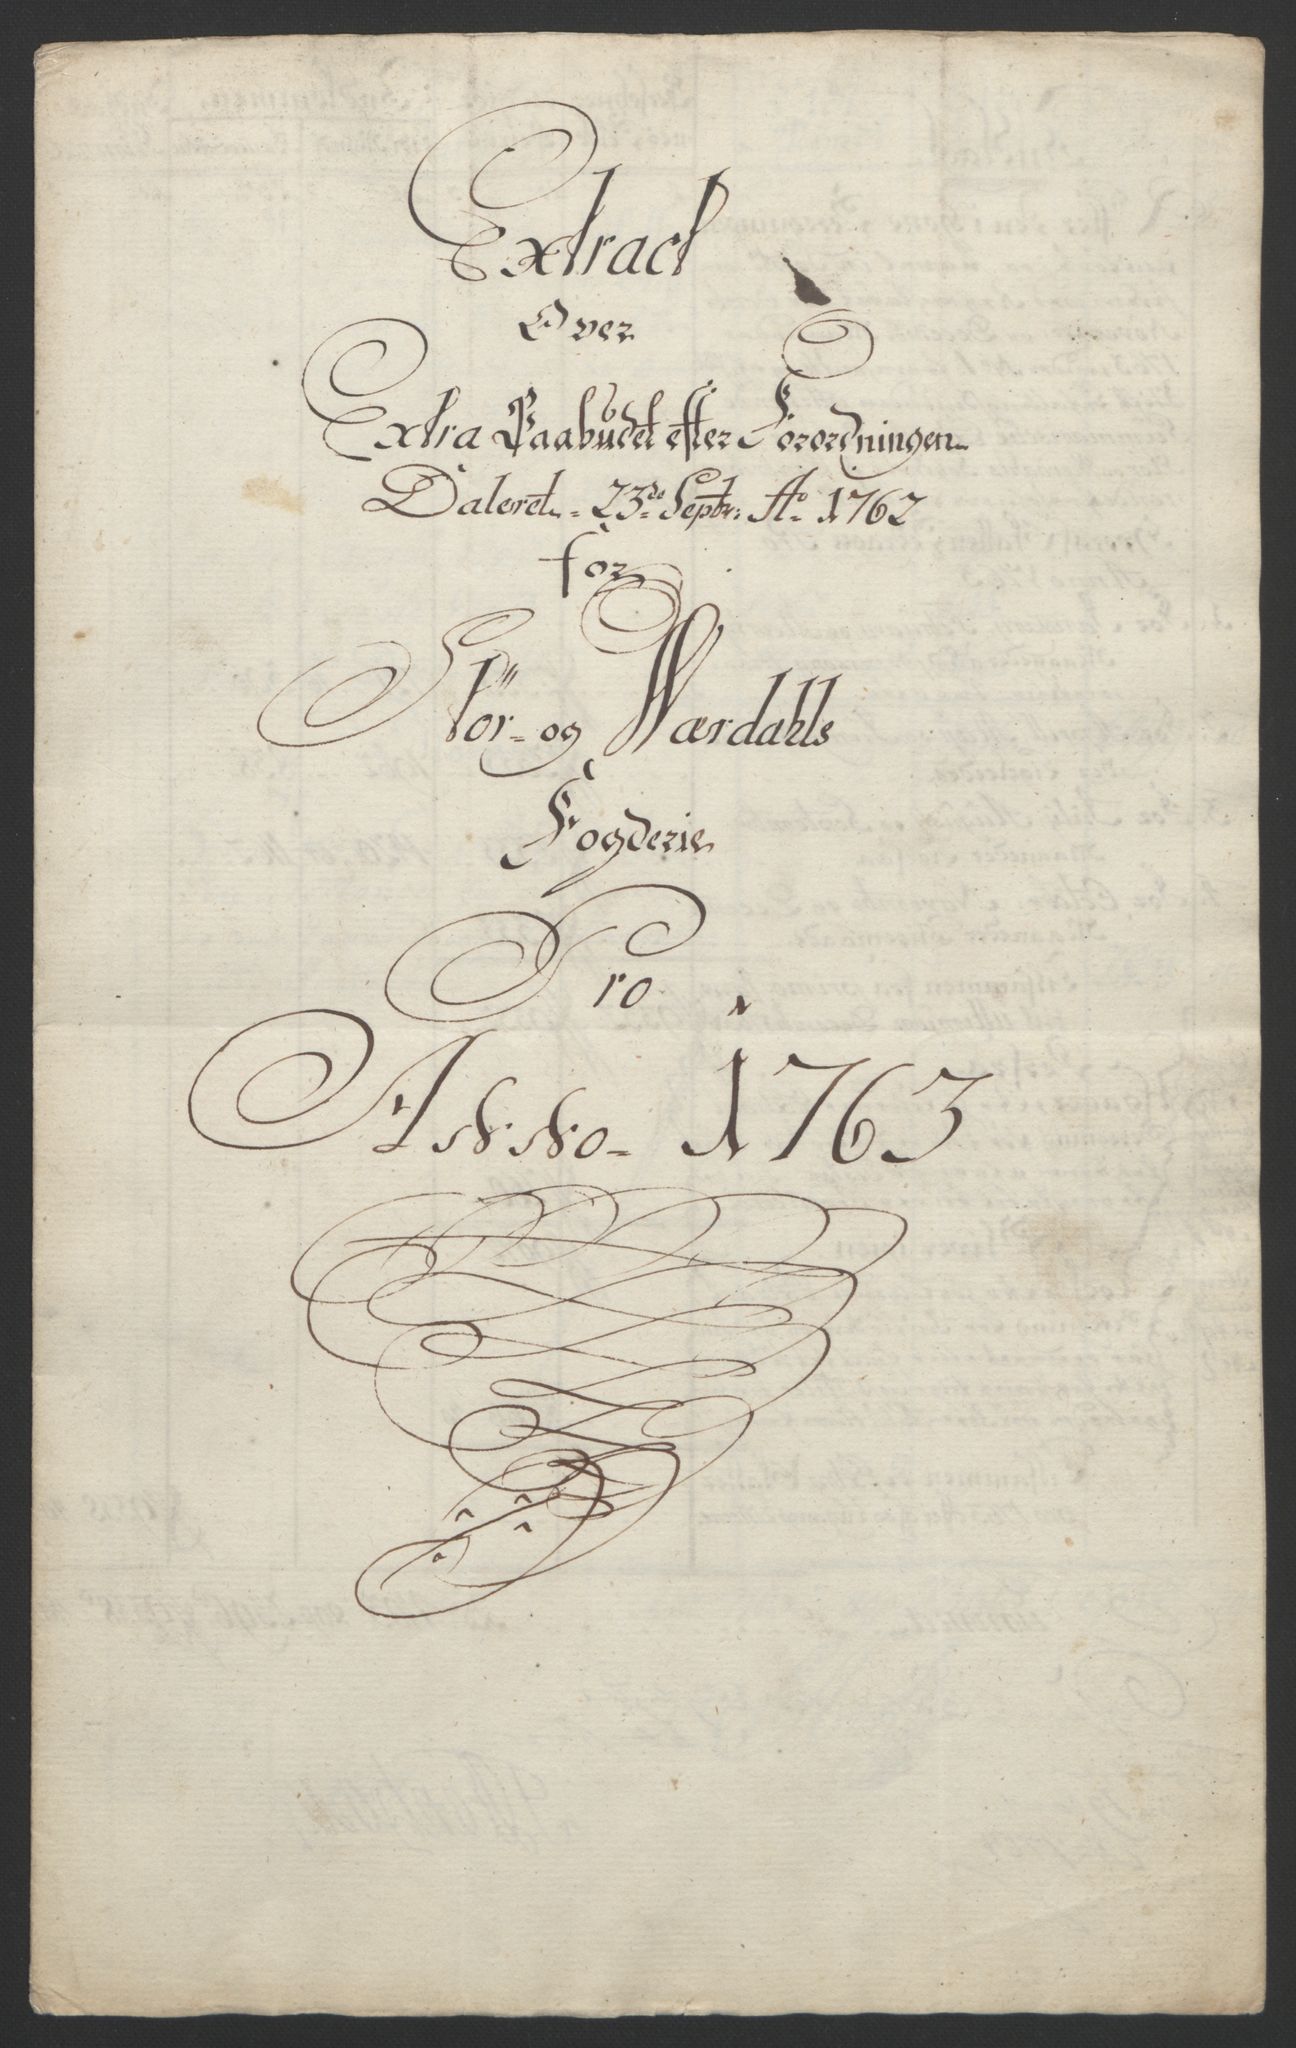 Extract
Over
Extra Paabudet efter Forordningen
Dateret 23de Septbr: Ao 1762
for
Stör- og Værdahls
Fogderie
Pro
Anno 1763